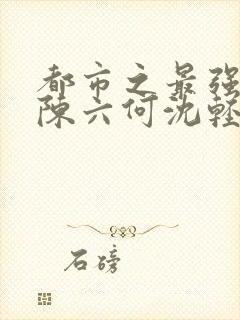 都市之最强
陈六何沈轻
石磅